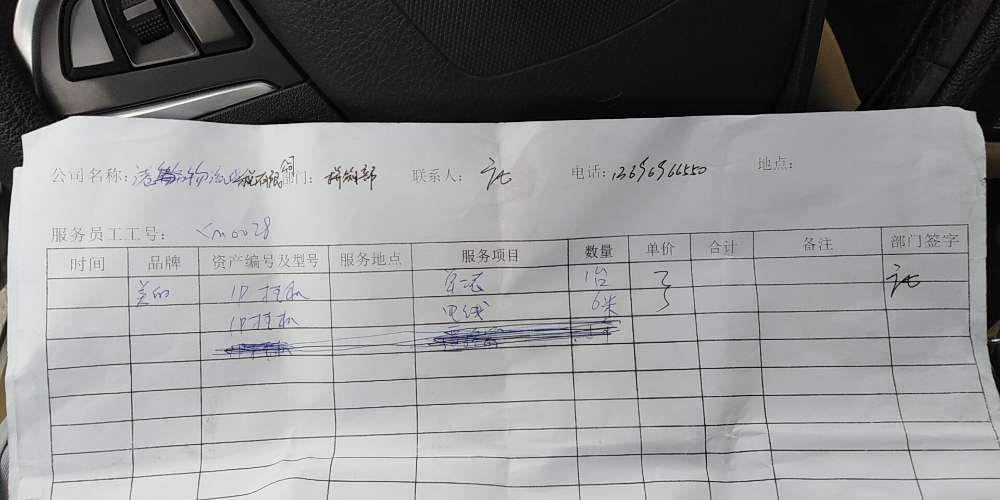 公司名称: 物流 有限公司 部门: 采购部 联系人: 电话: 13696966550 地点:
服务员工工号: Cm0028
时间 品牌 资产编号及型号 服务地点 服务项目 数量 单价 合计 备注 部门签字
美的 1P挂机 1台
1P挂机 电线 6米